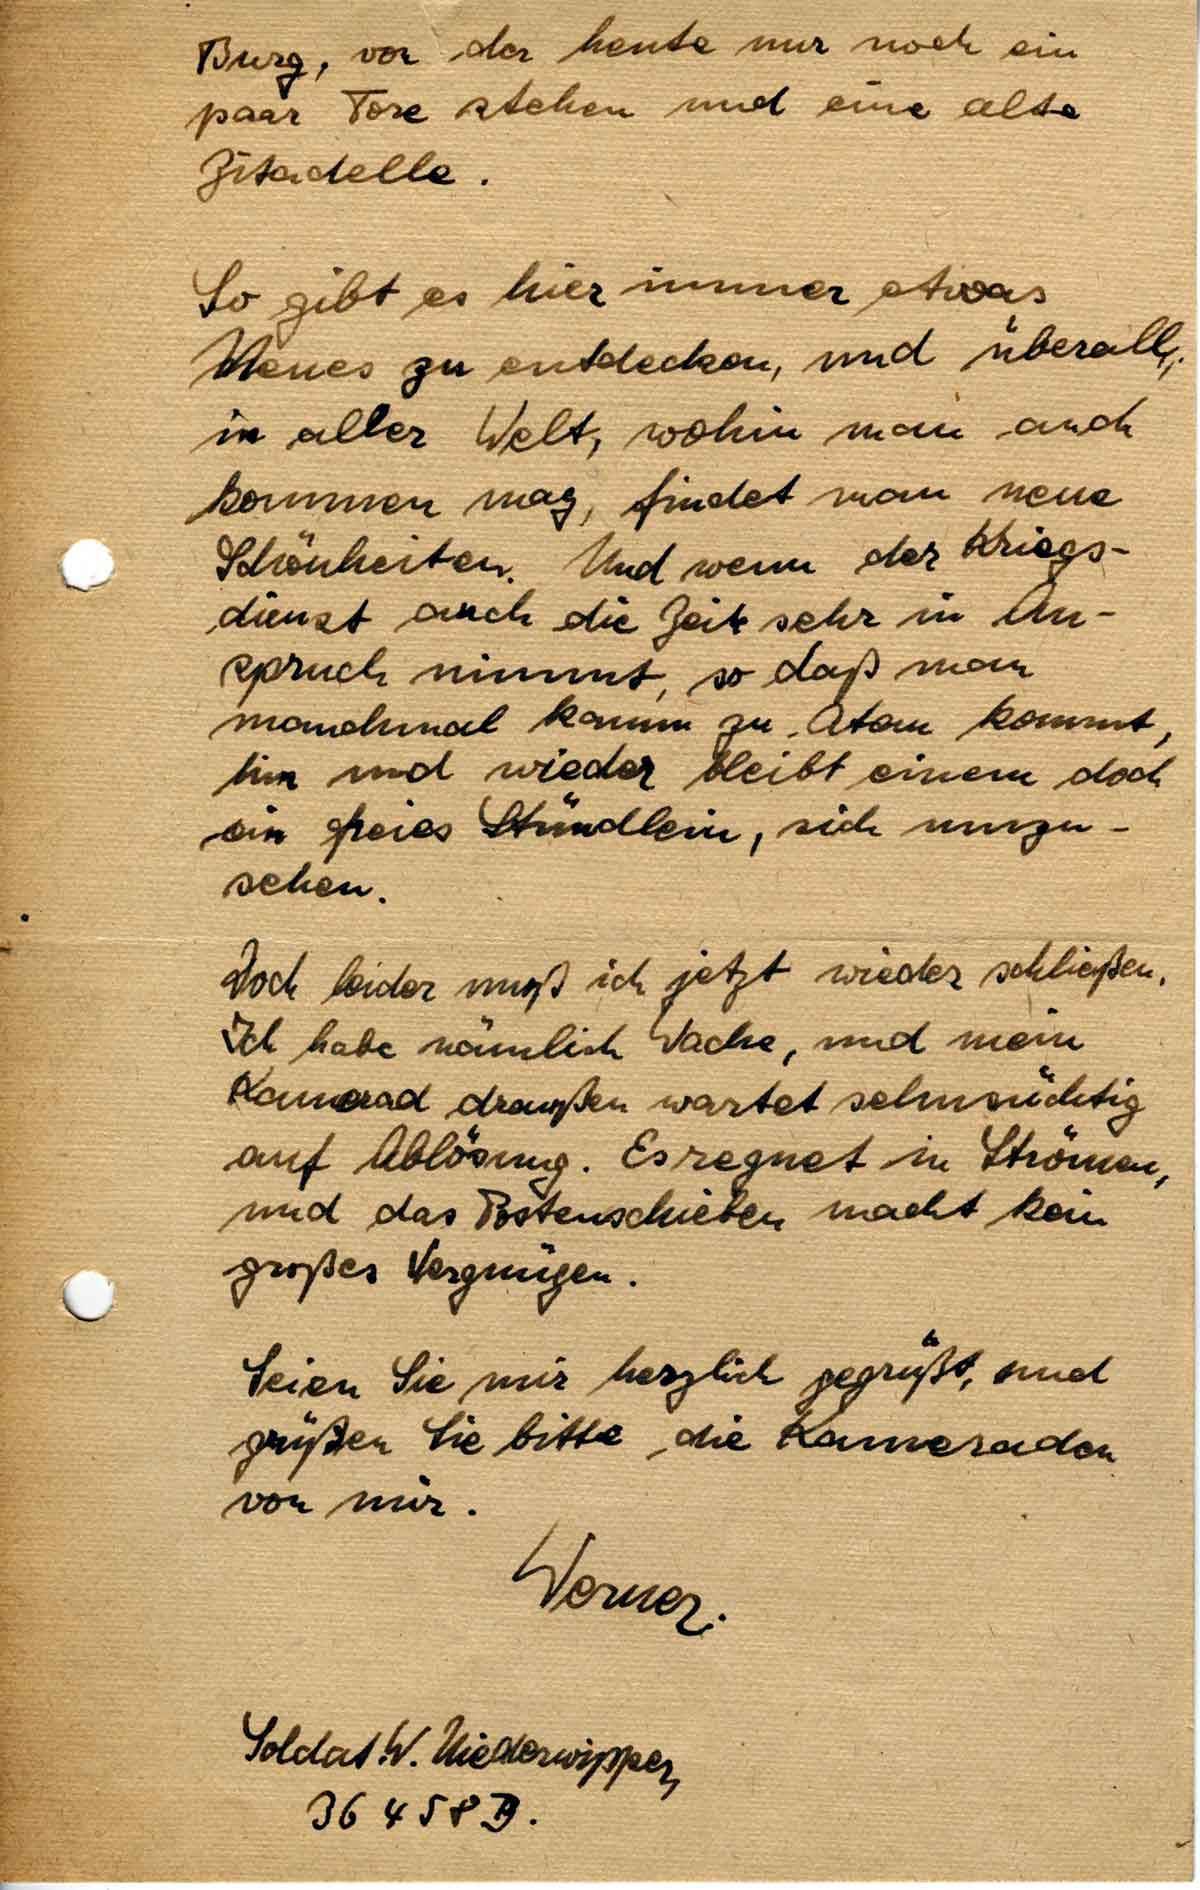 Burg, von der heute nur noch ein
paar Tore stehen und eine alte
Zitadelle.
So gibt es hier immer etwas
Neues zu entdecken, und überall,
in aller Welt, wohin man auch
kommen mag, findet man neue
Schönheiten. Und wenn der Kriegs-
dienst auch die Zeit sehr in An-
spruch nimmt, so daß man
manchmal kaum zu Atem kommt,
hin und wieder bleibt einem doch
ein freies Stündlein, sich umzu-
sehen.
Doch leider muß ich jetzt wieder schließen.
Ich habe nämlich Wache, und mein
Kamerad draußen wartet sehnsüchtig
auf Ablösung. Es regnet in Strömen,
und das Postenschieben macht kein
großes Vergnügen.
Seien Sie mir herzlich gegrüßt, und
grüßen Sie bitte die Kameraden
von mir.
Werner.
Soldat W. Niederwipper,
36458 B.